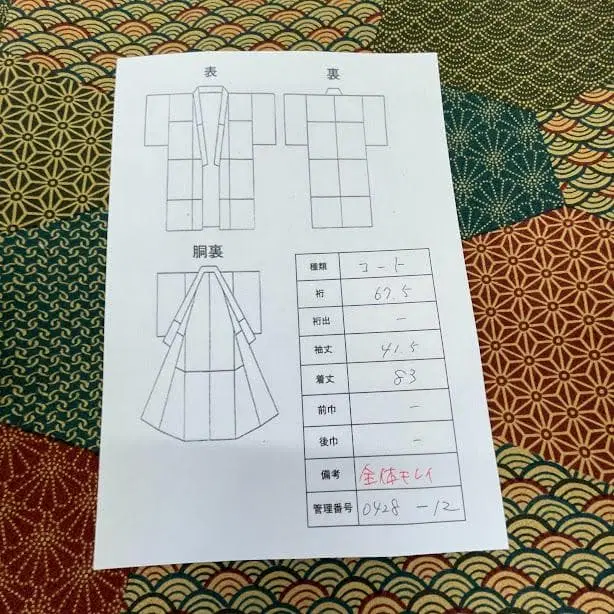 表
裏
胴裏
種類 コート
裄 67.5
裄出 -
袖丈 41.5
着丈 83
前巾 -
後巾 -
備考 全体モレイ
管理番号 0428-12